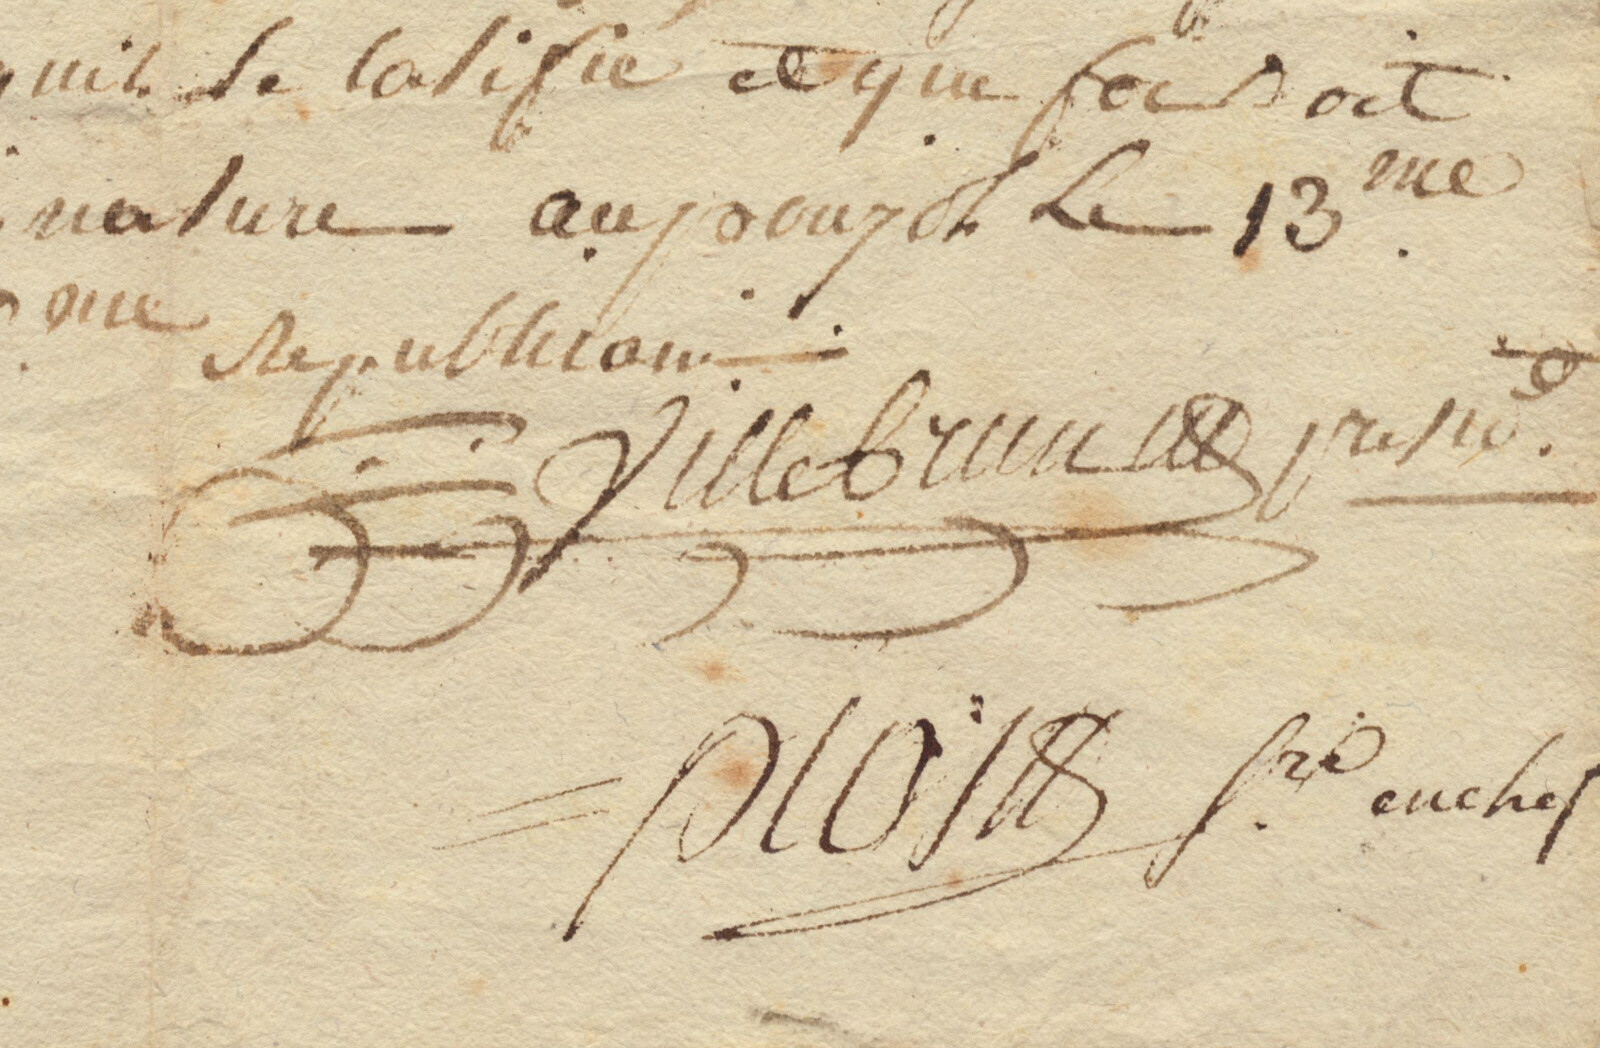 quil se lasifié et que foi soit
nature aujourd. Le 13.me
me Republicain
Villebrun presid.
Plois S.re en chef